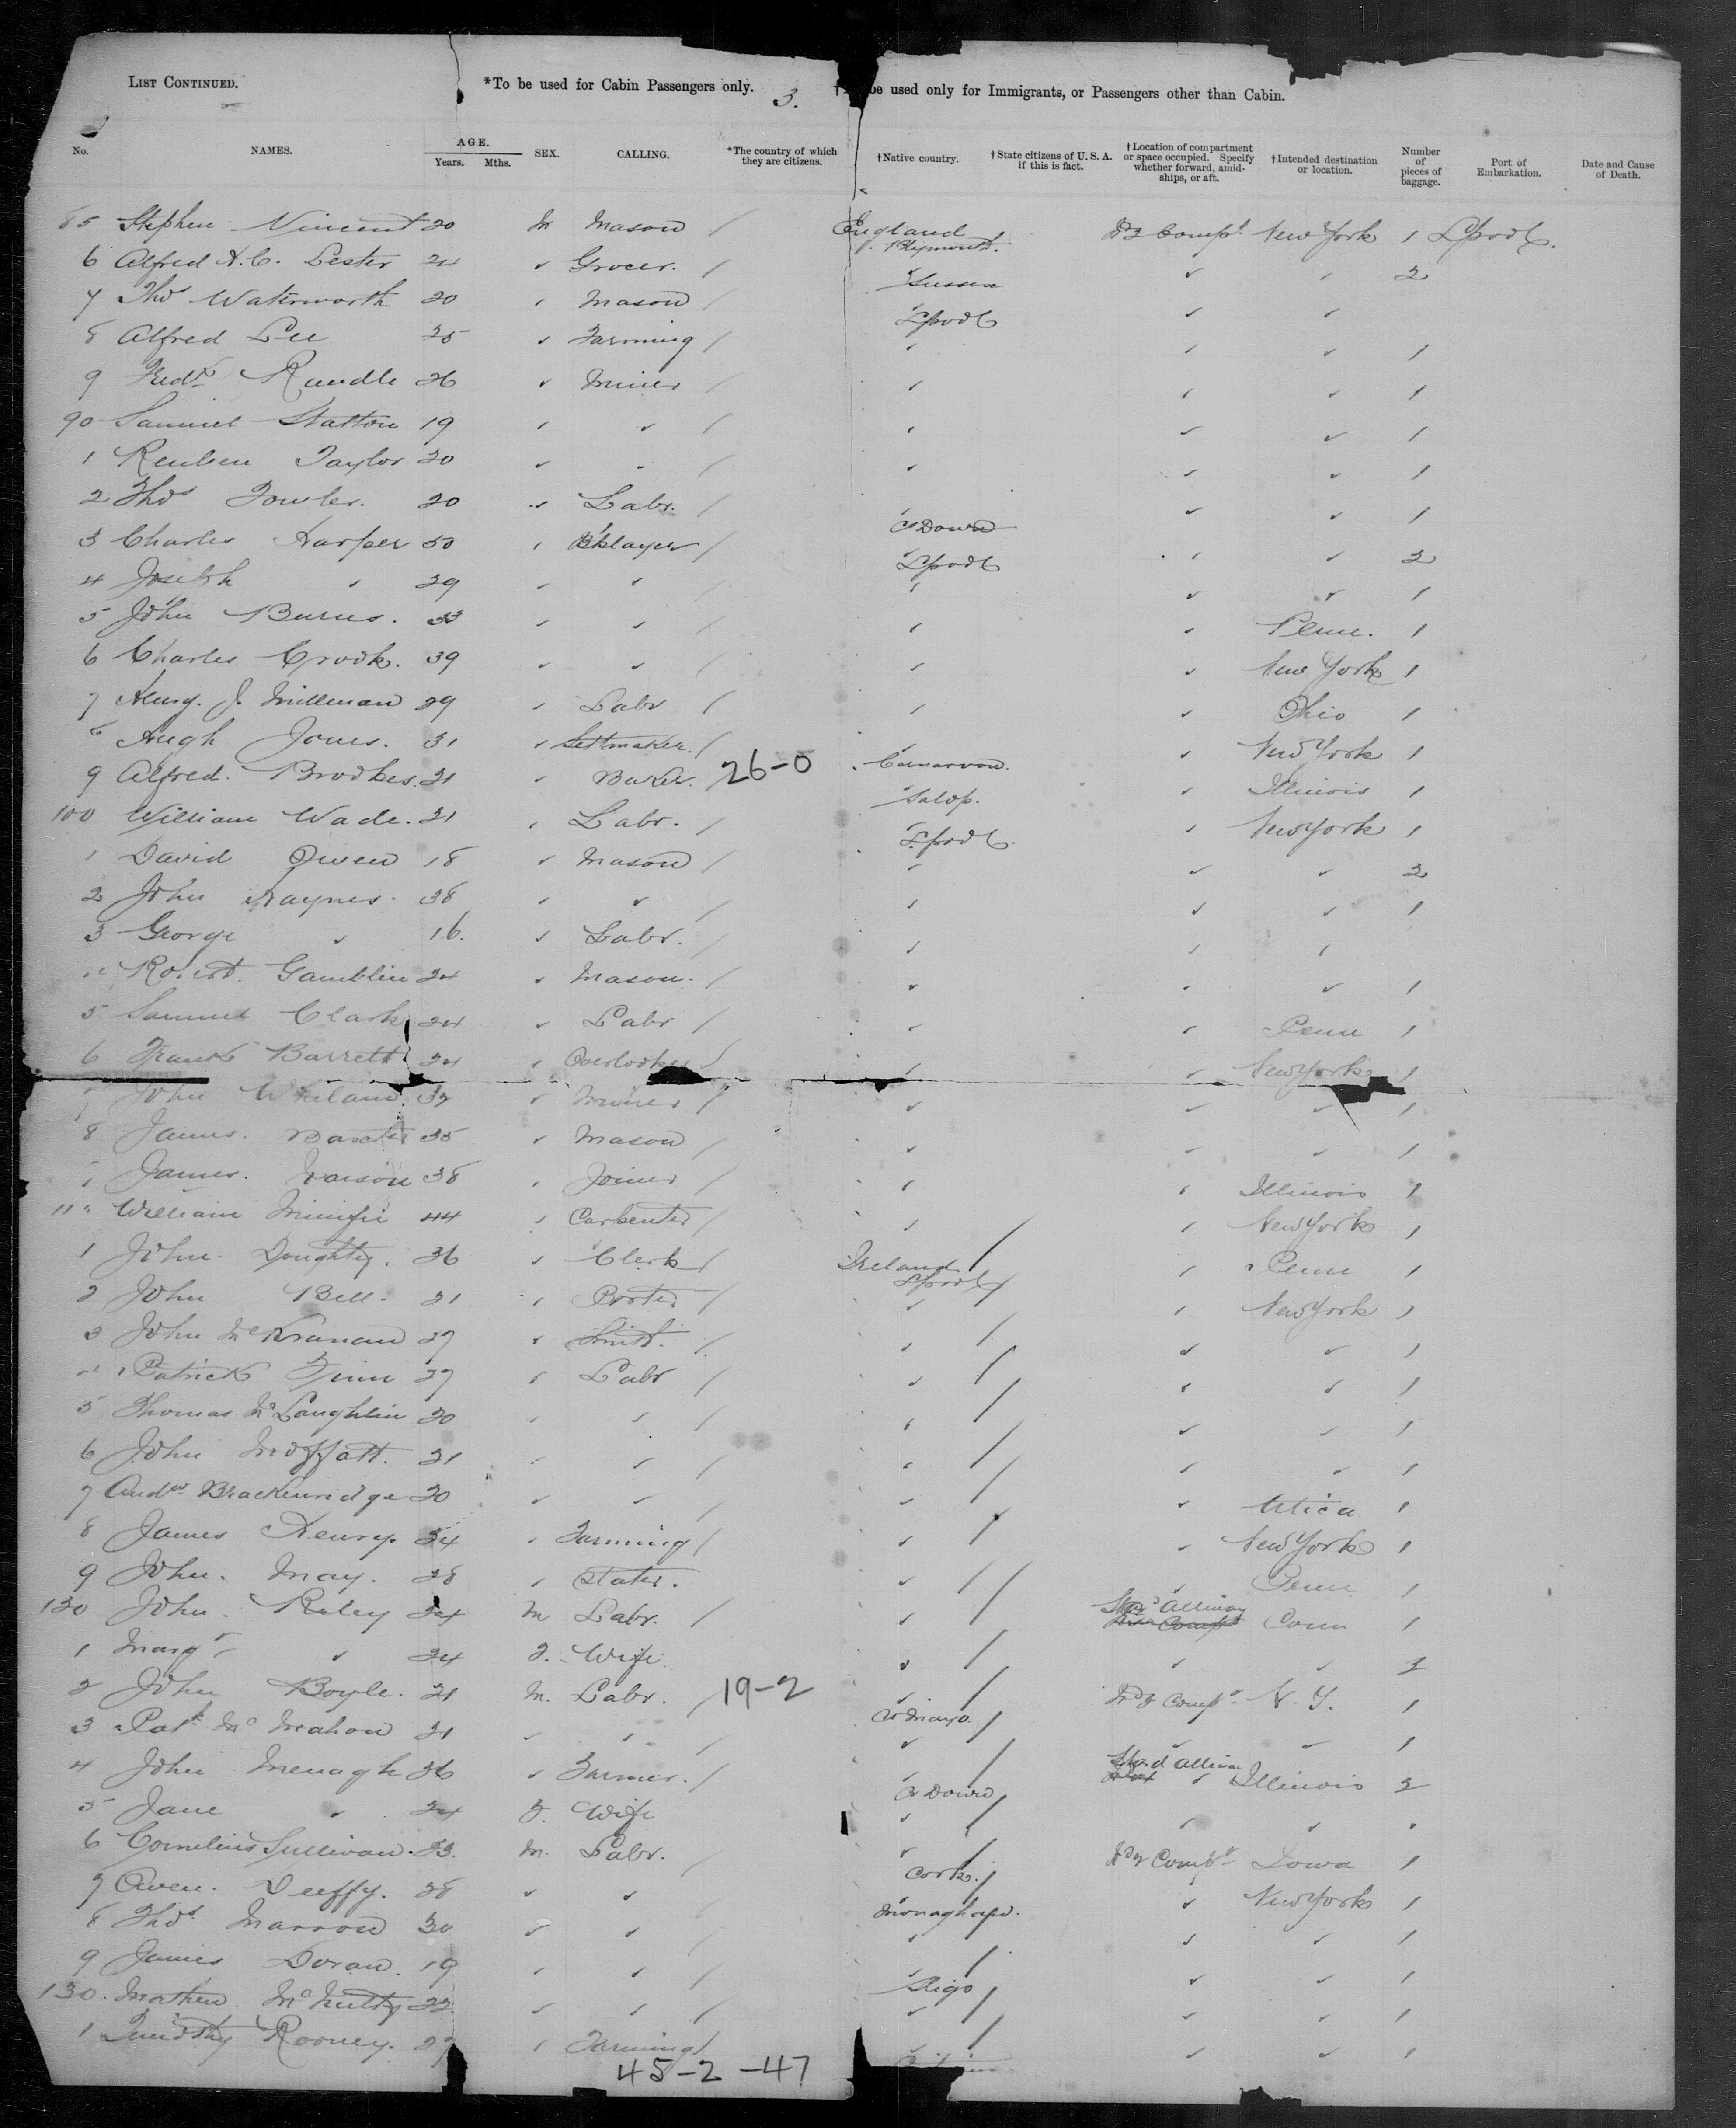 LIST CONTINUED. *To be used for Cabin Passengers only. 3. be used only for Immigrants, or Passengers other than Cabin.
No. NAMES. AGE. Years. Mths. SEX. CALLING. *The country of which they are citizens. †Native country. †State citizens of U. S. A. if this is fact. †Location of compartment or space occupied. Specify whether forward, amidships, or aft. †Intended destination or location. Number of pieces of baggage. Port of Embarkation. Date and Cause of Death.
85 Stephen Vincent 20 M Mason / England Plymouth. Compt. New York 1 Lpool.
6 Alfred H.C. Lester 24 ✓ Grocer. / Sussex ✓ ✓ 2
7 Thos Waterworth 20 ✓ Mason / Lpool ✓ ✓
8 Alfred Lee 25 ✓ Farming / ✓ ✓ ✓ 1
9 Fredk Rundle 26 ✓ Miner / ✓ ✓ ✓ 1
90 Samuel Statton 19 ✓ ✓ / ✓ ✓ ✓ 1
1 Reuben Taylor 20 ✓ ✓ / ✓ ✓ ✓ 1
2 Thos Fowler. 20 ✓ Labr. / Co Down ✓ ✓ 1
3 Charles Harper 50 ✓ Bklayer / Lpool ✓ ✓ 2
4 Joseph ✓ 29 ✓ ✓ / ✓ ✓ ✓ 1
5 John Burns. 33 ✓ ✓ / ✓ ✓ Penn. 1
6 Charles Crook. 39 ✓ ✓ / ✓ ✓ New York 1
7 Henry. J. Millman 29 ✓ Labr / ✓ ✓ Ohio 1
8 Hugh Jones. 31 ✓ Settmaker. / Carnarvon. ✓ New York 1
9 Alfred. Brookes. 21 ✓ Baker. / 26-0 Salop. ✓ Illinois 1
100 William Wade. 21 ✓ Labr. / Lpool. ✓ New York 1
1 David Owen 18 ✓ Mason / ✓ ✓ ✓ 2
2 John Raynes. 38 ✓ ✓ / ✓ ✓ ✓ 1
3 George ✓ 16. ✓ Labr. / ✓ ✓ ✓
Robert. Gamblin 24 ✓ Mason. / ✓ ✓ ✓ 1
5 Samuel Clark 24 ✓ Labr / ✓ ✓ Penn 1
6 Frank Barrett 24 ✓ Overlooker / ✓ ✓ New York 1
John ✓ Miner / ✓ ✓ ✓ 1
8 James. Baxter 35 ✓ Mason / ✓ ✓ ✓ 1
James. 38 ✓ Joiner / ✓ ✓ Illinois 1
William Minifie 44 ✓ Carpenter / ✓ ✓ New York 1
1 John. Doughty. 36 ✓ Clerk / Ireland Lpool ✓ Penn 1
2 John Bell. 21 ✓ Porter / ✓ ✓ New York 1
3 John 27 ✓ Smith. / ✓ ✓ ✓ 1
Patrick Finn 27 ✓ Labr / ✓ ✓ ✓ 1
5 Thomas McLaughlin 20 ✓ ✓ / ✓ ✓ ✓ 1
6 John Moffatt. 21 ✓ ✓ / ✓ ✓ ✓ 1
7 Andw Brackenridge 20 ✓ ✓ / ✓ ✓ Utica 1
8 James Henry. 24 ✓ Farming / ✓ ✓ New York 1
9 John. May. 28 ✓ Slater. ✓ ✓ Penn 1
120 John. Riley 24 M Labr. / ✓ Conn 1
1 Margt ✓ 24 F. Wife ✓ ✓ ✓
2 John Boyle. 21 M. Labr. / 19-2 Co Mayo. Compt. N.Y. 1
3 Patk McMahon 21 ✓ ✓ / ✓ ✓ ✓ 1
4 John Menagh 26 ✓ Farmer. / Co Down ✓ Illinois 2
5 Jane ✓ 24 F. Wife ✓ ✓ ✓
6 Cornelius Sullivan. 23. M. Labr. / Cork. Compt Iowa 1
7 Owen. Duffy. 28 ✓ ✓ / Monaghan. ✓ New York 1
8 Thos. Marron 30 ✓ ✓ / ✓ ✓ ✓ 1
9 James Doran. 19 ✓ ✓ / Sligo ✓ ✓ 1
130. Mathew. McNulty 22. ✓ ✓ / ✓ ✓ ✓ 1
1 Timothy Rooney. 27 ✓ Farming / ✓ ✓ 1
45-2-47